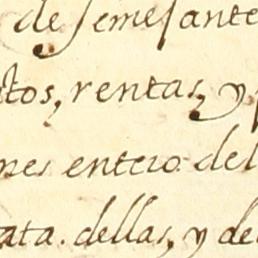 de semejante
tos, rentas, y
nes entero del
ata. dellas, y de